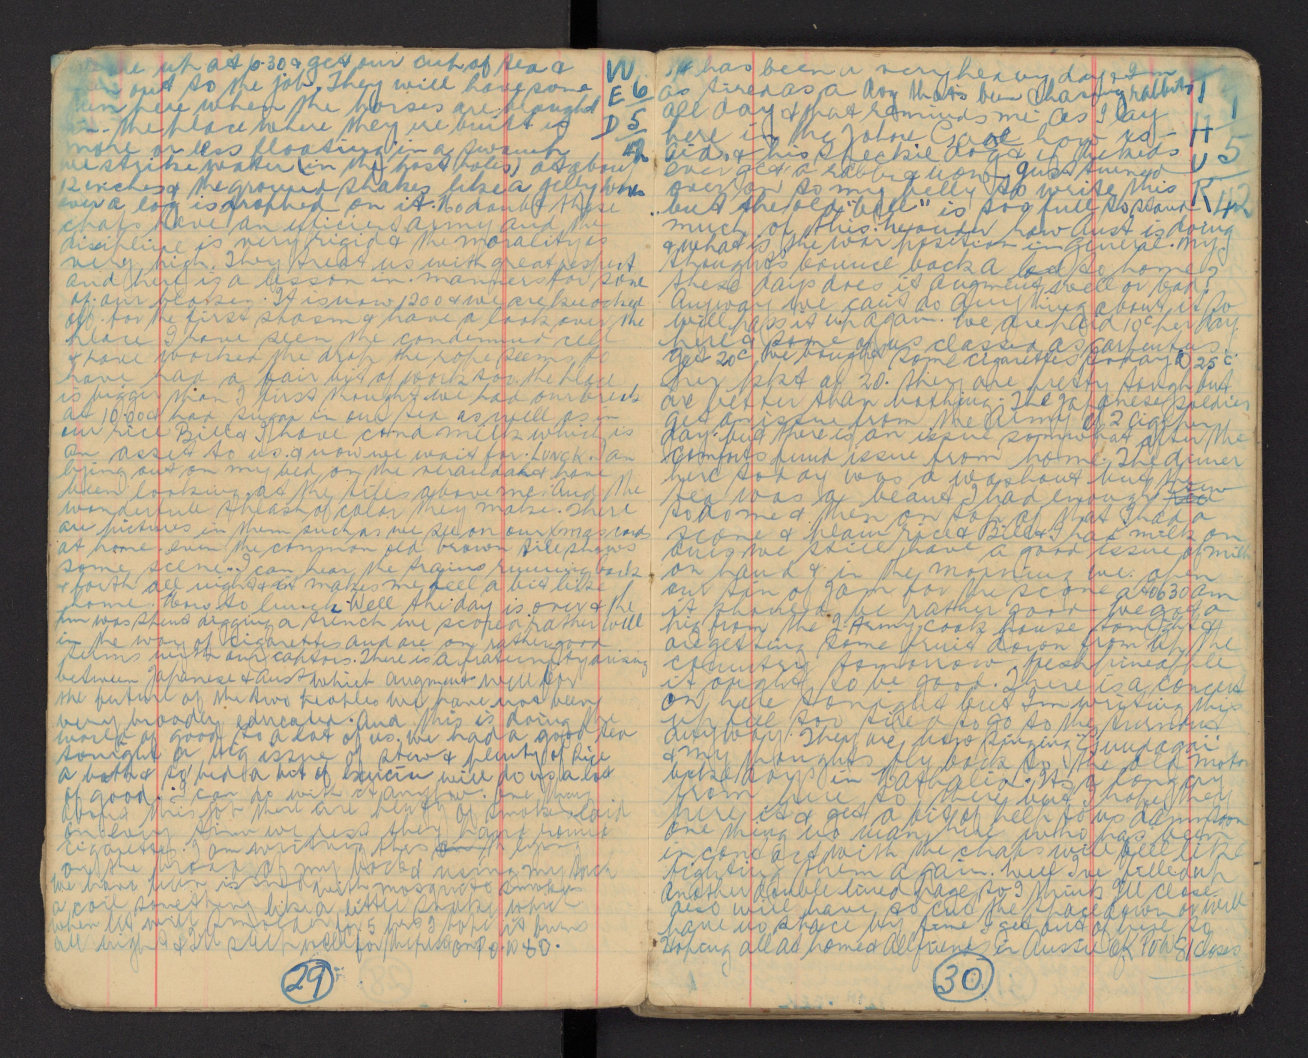 up at 6-30 & get our cup of tea &
out to the job. They will have some
here when the horses are brought
in. The place where they're built is
more or less floating in a swamp
we strike water (in the post holes) at about
12 inches & the ground shakes like a jelly when
ever a log is dropped on it. No doubt these
chaps have an efficient army and the
discipline is very rigid & the morality is
very high. They treat us with great respect
and there is a lesson in manners for some
of our blokes. It is now 1200 & we are knocked
off for the first spasm & have a look over the
place I have seen the condemned cell
& have worked the drop the rope seems to
have had a fair bit of work too. The place
is bigger than I first thought we had our break
at 10.00 & had sugar in our tea as well as in
our rice Bill & I have cond milk which is
an asset to us. & now we wait for lunch. I am
lying out on my bed on the verandah & have
been looking at the tiles above me and the
wonderfull splash of color they make. There
are pictures in them such as we see on our Xmas cards
at home. even the common old brown tile shows
some scene. I can hear the trains running back
& forth all night & it makes me feel a bit like
home. Now to lunch. Well the day is over & the
was spent digging a trench we scored rather well
in the way of cigarettes and are on rather good
terms with our captors. There is a fraternity arising
between Japanese & Aust which augments well for
the future of the two peoples we have not been
very broadly educated. And this is doing the
world of good to a lot of us. We had a good tea
tonight a big issue of stew & plenty of rice
a bath & to bed a bit of will do us a lot
of good. I can do with it anyhow. One thing
about this job there are plenty of smokes
every time we rest they hand round
cigarettes. I am writing this lying
on the broad of my back using my
we have been issued with mosquito smokes
a coil something like a little snake which
when lit will smoulder for 5 hrs I hope it burns
all night & I'll sleep well
29
W
E
D
6
5
42
It has been a very heavy day & I'm
as tired as a dog thats been chasing rabbits
all day & that reminds me as I lay
here in the Johore Gaol how is
& his speckle dog & if the kids
ever get a rabbit now. Just turned
over on to my belly to write this
but the old "belle" is too full to stand
much of this. Wonder how Aust is doing
& what is the war position in general. My
thoughts bounce back a lot to home
these days does it augment well or bad?
Anyway we can't do anything about it so
will pass it up again. We are paid 10c per day
here & some of us classed as carpenters
get 20c. We bought some cigarettes today @ 25c
per pkt of 20. They are pretty tough but
are better than nothing. The Japanese soldier
get an issue from the Army of 2 cig per
day. but there is an issue somewhat after the
comforts fund issue from home. The dinner
here today was a washout but the
tea was a beaut I had enough stew
to do me & then on top of that I had a
scone & plain rice & Bill & I had milk on
ours we still have a good issue of milk
on hand & in the morning we open
our tin of jam for the scone at 0630 am
it should be rather good. We got a
from the I.J. Army cook house tonight &
are getting some fruit down from up the
country tomorrow, pears pineapple
it ought to be good. There is a concert
on here tonight but I'm writing this
& feel too tired to go to the turnout
anyway. They are now singing "Gundagai"
& my thoughts fly back to the old motor
bike days in Nathalia. Its a long cry
from here to there but I hope they
hear it & get a bit of help to us damn soon
one thing no man here who has been
in contact with the chaps will feel like
fighting them again. Well I've filled up
another double lined page so I think I'll close
also will have to cut the space down or will
have no space by time I get out of here so
Hoping all at home & all friends in Aussie OK Tom S. closes
30
T
H
U
R
1
5
42